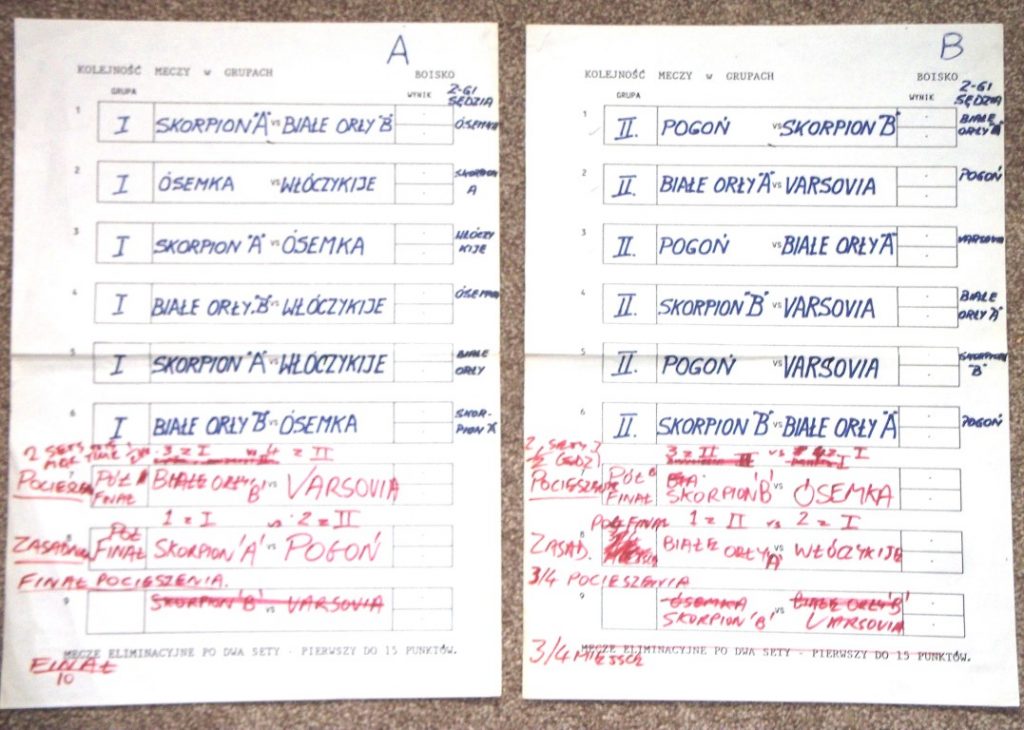 A
KOLEJNOŚĆ MECZY W GRUPACH BOISKO
GRUPA WYNIK 2-GI SĘDZIA
1 I SKORPION "A" vs BIAŁE ORŁY "B" ÓSEMKA
2 I ÓSEMKA vs WŁÓCZYKIJE SKORPION A
3 I SKORPION "A" vs ÓSEMKA WŁÓCZYKIJE
4 I BIAŁE ORŁY "B" vs WŁÓCZYKIJE ÓSEMKA
5 I SKORPION "A" vs WŁÓCZYKIJE BIAŁE ORŁY
6 I BIAŁE ORŁY "B" vs ÓSEMKA SKORPION "A"
2 SETS 3 z I vs 4 z II
POCIESZENIA PÓŁ FINAŁ BIAŁE ORŁY 'B' vs VARSOVIA
1 z I vs 2 z II
8 ZASADN. PÓŁ FINAŁ SKORPION 'A' vs POGOŃ
FINAŁ POCIESZENIA.
9 SKORPION 'B' vs VARSOVIA
MECZE ELIMINACYJNE PO DWA SETY - PIERWSZY DO 15 PUNKTÓW.
FINAŁ
10
B
KOLEJNOŚĆ MECZY W GRUPACH BOISKO
GRUPA WYNIK 2-GI SĘDZIA
1 II. POGOŃ vs SKORPION "B" BIAŁE ORŁY "A"
2 II. BIAŁE ORŁY "A" vs VARSOVIA POGOŃ
3 II. POGOŃ vs BIAŁE ORŁY "A" VARSOVIA
4 II. SKORPION "B" vs VARSOVIA BIAŁE ORŁY "A"
5 II. POGOŃ vs VARSOVIA SKORPION "B"
6 II. SKORPION "B" vs BIAŁE ORŁY "A" POGOŃ
2 SETY 3 z II vs 4 z I
POCIESZENIE PÓŁ FINAŁ SKORPION 'B' vs ÓSEMKA
PÓŁ FINAŁ 1 z II vs 2 z I
8 ZASAD. BIAŁE ORŁY 'A' vs WŁÓCZYKIJE
3/4 POCIESZENIA
9 ÓSEMKA vs BIAŁE ORŁY 'B'
SKORPION 'B' VARSOVIA
MECZE ELIMINACYJNE PO DWA SETY - PIERWSZY DO 15 PUNKTÓW.
3/4 MIEJSCE